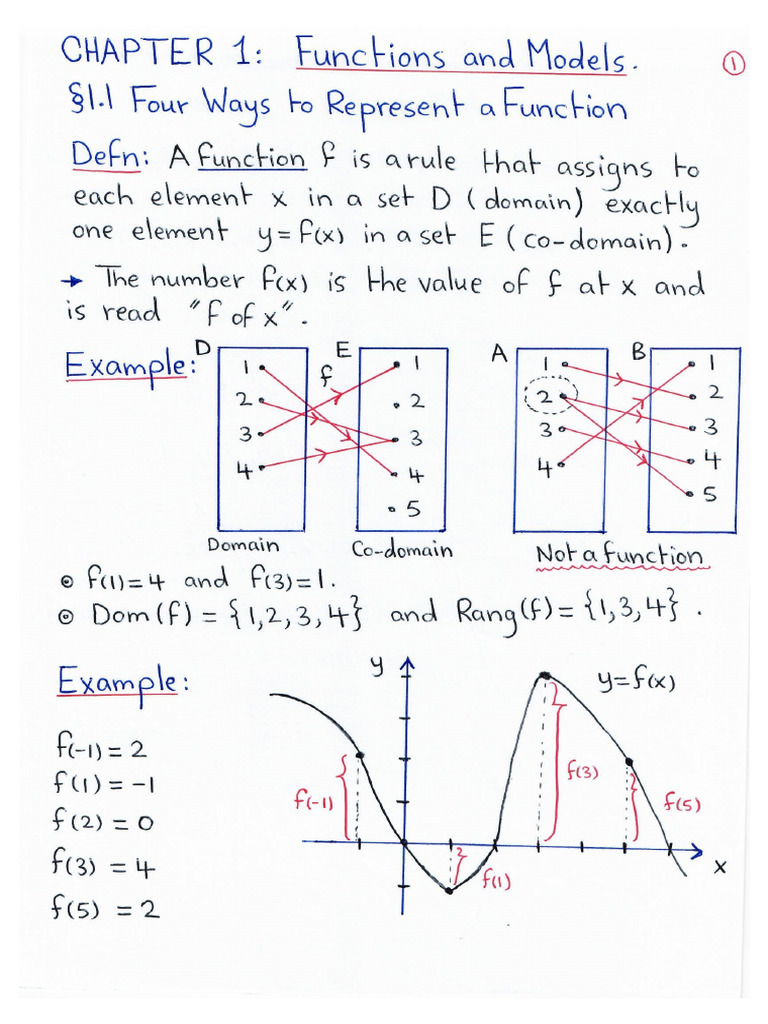 CHAPTER 1: Functions and Models.
①
§1.1 Four Ways to Represent a Function
Defn: A function f is a rule that assigns to
each element x in a set D (domain) exactly
one element y = f(x) in a set E (co-domain).
→ The number f(x) is the value of f at x and
is read "f of x".
Example:
D E A B
f
1 1 1 1
2 2 2 2
3 3 3 3
4 4 4 4
5 5
Domain Co-domain Not a function
⊙ f(1)=4 and f(3)=1.
⊙ Dom(f) = {1,2,3,4} and Rang(f) = {1,3,4}.
Example:
y
y=f(x)
f(-1) = 2
f(1) = -1
f(2) = 0
f(3) = 4
f(5) = 2
f(-1)
f(3)
f(5)
f(1)
x